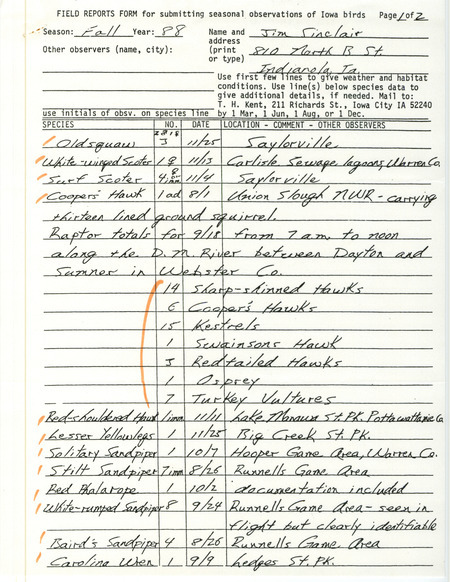 FIELD REPORTS FORM for submitting seasonal observations of Iowa birds Page 1 of 2
Season: Fall Year: 88 Name and Jim Sinclair
address
Other observers (name, city): (print 810 North B St.
or type)
Indianola, Ia.
Use first few lines to give weather and habitat
conditions. Use line(s) below species data to
give additional details, if needed. Mail to:
T. H. Kent, 211 Richards St., Iowa City IA 52240
use initials of obsv. on species line by 1 Mar, 1 Jun, 1 Aug, or 1 Dec.
SPECIES NO. DATE LOCATION - COMMENT - OTHER OBSERVERS
Oldsquaw 3 11/25 Saylorville
White-winged Scoter 1♀ 11/13 Carlisle Sewage lagoons, Warren Co.
Surf Scoter 4 ♀ or imm 11/4 Saylorville
Cooper's Hawk 1 ad 8/1 Union Slough NWR - carrying
thirteen lined ground squirrel.
Raptor totals for 9/18 from 7 a.m. to noon
along the D.M. River between Dayton and
Sumner in Webster Co.
14 Sharp-shinned Hawks
6 Cooper's Hawks
15 Kestrels
1 Swainsons Hawk
3 Redtailed Hawks
1 Osprey
7 Turkey Vultures
Red-shouldered Hawk 1 imm 11/11 Lake Manawa St. Pk. Pottawattamie Co
Lesser Yellowlegs 1 11/25 Big Creek St. Pk.
Solitary Sandpiper 1 10/7 Hooper Game Area, Warren Co.
Stilt Sandpiper 7 imm 8/26 Runnells Game Area
Red Phalarope 10/2 documentation included
White-rumped Sandpiper 8 9/24 Runnells Game Area - seen in
flight but clearly identifiable
Baird's Sandpiper 4 8/26 Runnells Game Area
Carolina Wren 1 9/9 Ledges St. Pk.